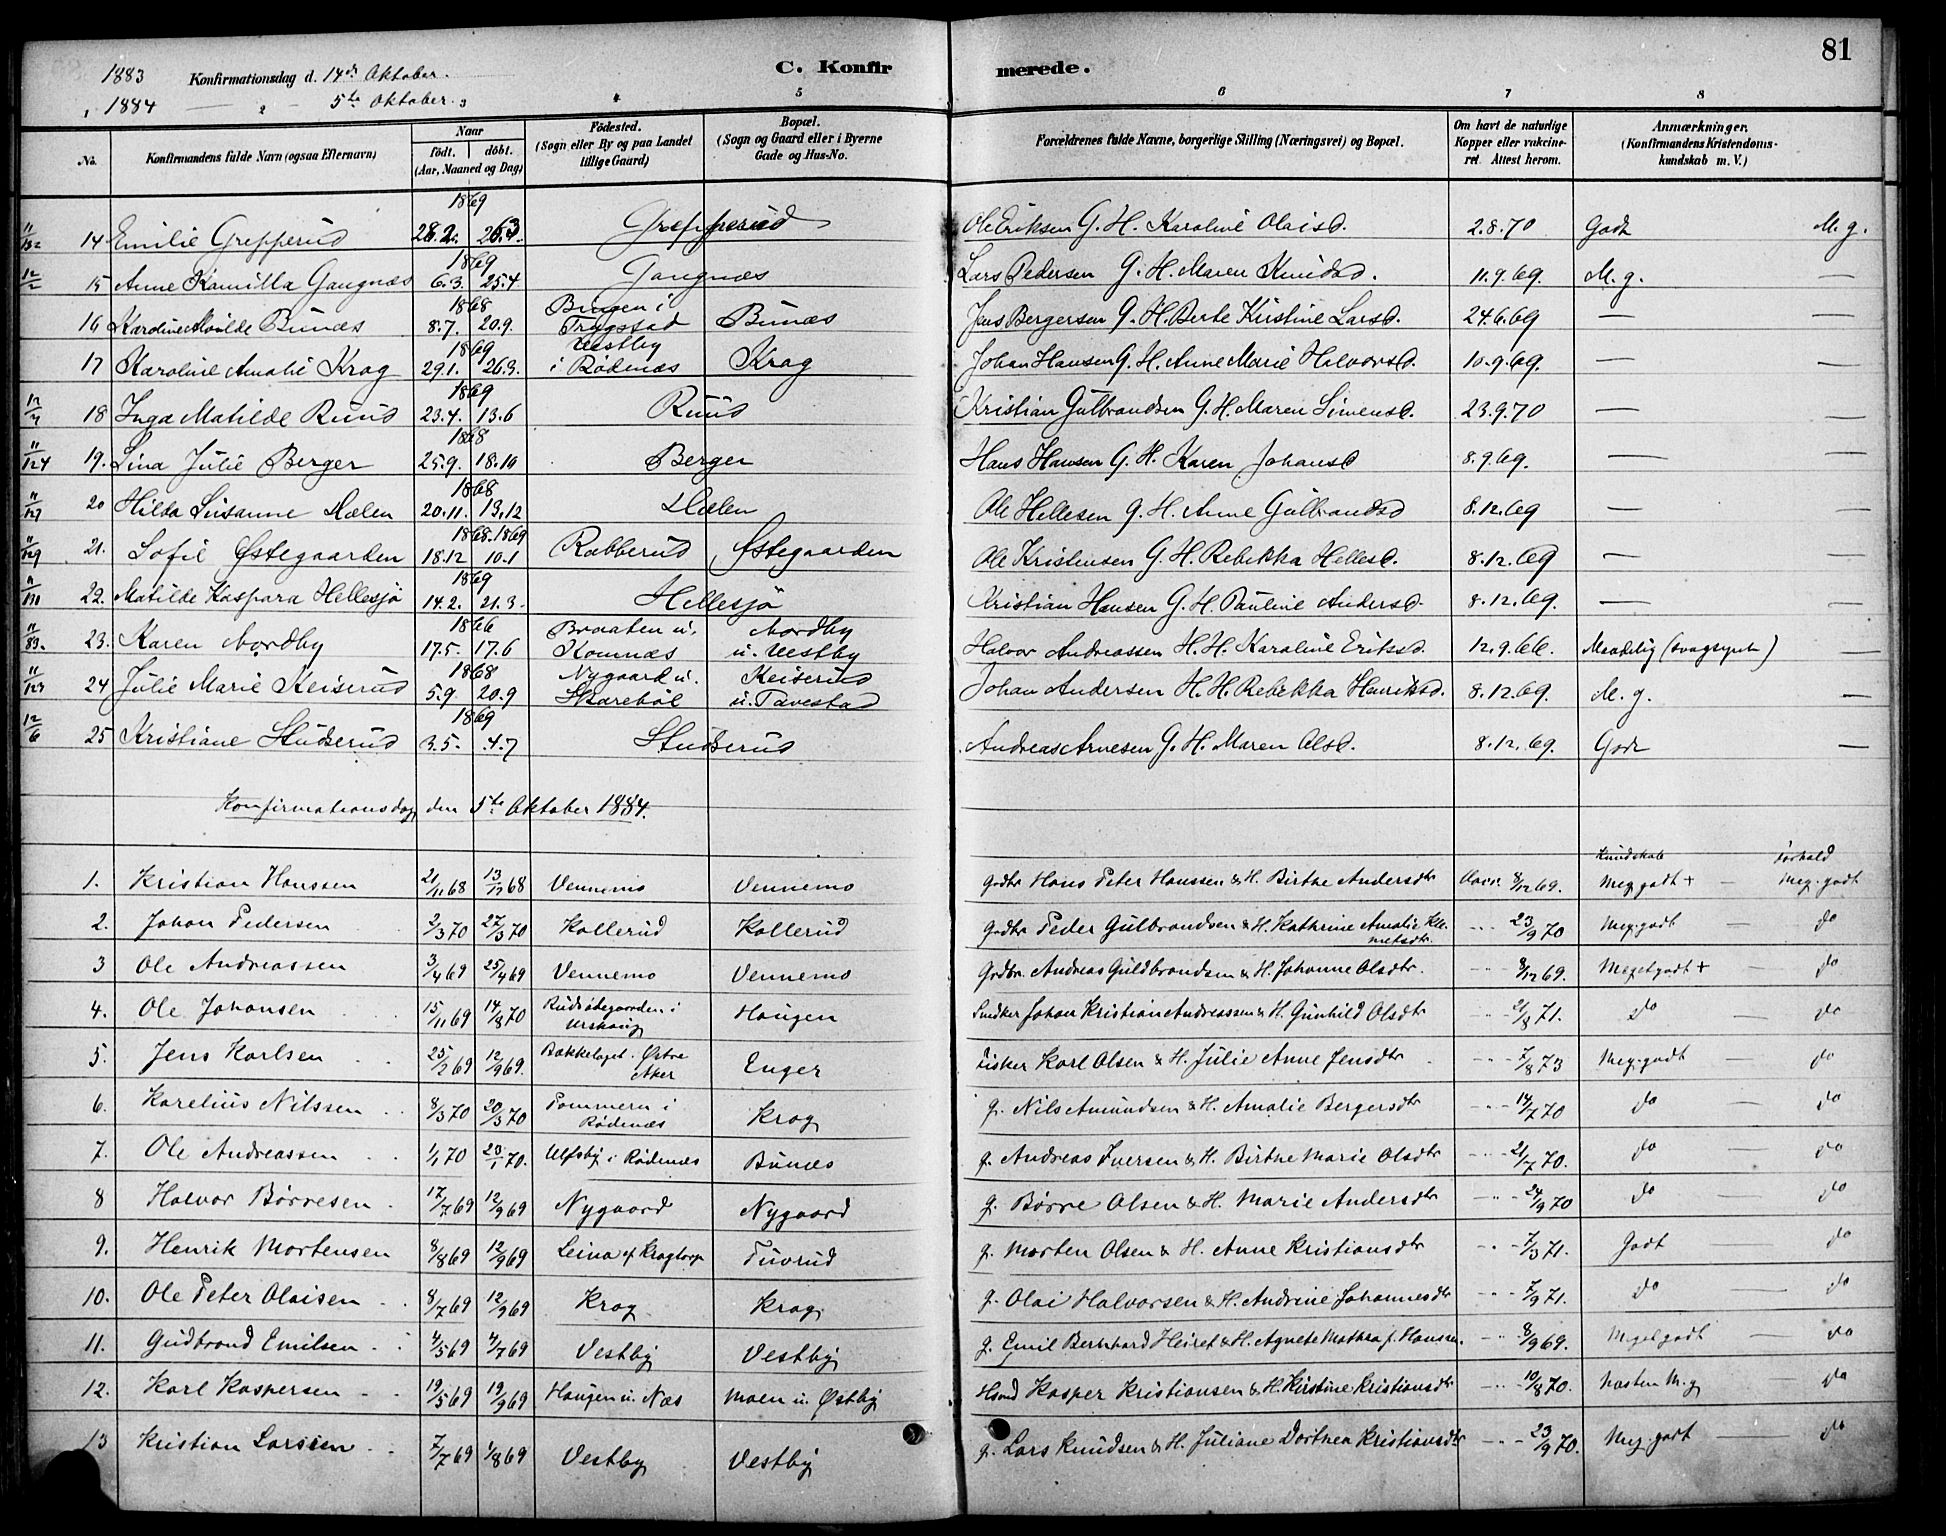 81
1883 Konfirmationsdag d. 14de Oktober. C. Konfirmerede.
1884 — " — 5te Oktober.
4 5 6 7 8
No. Konfirmandens fulde Navn (ogsaa Efternavn) Naar født. døbt. (Aar, Maaned og Dag) Fødested. (Sogn eller By og paa Landet tillige Gaard) Bopæl. (Sogn og Gaard eller i Byerne Gade og Hus-No. Forældrenes fulde Navne, borgerlige Stilling (Næringsvei) og Bopæl. Om havt de naturlige Kopper eller vakcineret. Attest herom. Anmærkninger. (Konfirmandens Kristendomskundskab m. V.)
1869
14 Emilie Grepperud Grepperud Ole Eriksen G. H. Karoline Olaisd. 2.8.70 Godt M. g.
1869
15 Anne Kamilla Gangnæs 6.3. 25.4 Gangnæs Lars Pedersen G. H. Maren Knudsd. 11.9.69. M. g. —
1868 Bingen i
16 Karoline Bunæs 8.7. 20.9. Trygstad Bunæs Jens Bergersen G. H. Berte Kristine Larsd. 24.6.69 — —
1869 Vestby
17 Karoline Amalie Krog 29.1. 26.3. i Rødenæs Krog Johan Hansen G. H. Anne Marie Halvorsd. 10.9.69. — —
1869
18 Inga Matilde Ruud 23.4. 13.6 Ruud Kristian Gulbrandsen G. H. Maren Simensd. 23.9.70 — —
1868
11/124 19. Lina Julie Berger 25.9. 18.10 Berger Hans Hansen G. H. Karen Johansd 8.9.69. — —
1868
11/127 20 Hilda Susanne Mælen 20.11. 13.12 Mælen Ole Hellesen G. H. Anne Gulbrandsd 8.12.69 — —
1868.1869
11/129 21. Sofie Østegaarden 18.12 10.1 Rabberud Østegaarden Ole Kristensen G. H. Rebekka Hellesd. 8.12.69 — —
1869
22. Matilde Kaspara Hellesjø 14.2. 21.3. Hellesjø Kristian Hansen G. H. Pauline Andersd. 8.12.69. — —
1866 Braaten u. Nordby
11/83. 23. Karen Nordby 17.5. 17.6 Komnæs u. Vestby Halvor Andreassen H. H. Karoline Eriksd. 12.9.66. Maadelig (svagsynt) —
1868 Nygaard u. Keiserud
11/123 24 Julie Marie Keiserud 5.9. 20.9 Skarebøl u. Tavestad Johan Andersen H. H. Rebekka Henriksd. 8.12.69. M. g. —
1869
12/6 25 Kristiane Studserud 3.5. 4.7 Studserud Andreas Arnesen G. H. Maren Olsd. 8.12.69. Godt —
Konfirmationsdag den 5te Oktober 1884.
Kundskab Forhold
1. Kristian Hanssen 21/11 68 13/12 68 Vennemo Vennemo Gadbr Hans Peter Hanssen & H. Birthe Andersdtr 8/12 69. Meg. godt + — Meg. godt
2. Johan Pedersen 2/3 70 27/3 70 Kollerud Kollerud Gadbr Peder Gulbrandsen & H. Kathrine Amalie Klemetsdtr. 23/9 70 Meg. godt — do
3 Ole Andreassen 3/4 69 25/4 69 Vennemo Vennemo Grdbr. Andreas Guldbrandsen & H. Johanne Olsdtr. 8/12 69. Meget godt + — do
4. Ole Johansen 15/11 69 14/8 70 Rudsøtegaarden i Urskoug Haugen Snedker Johan Kristian Andreassen & H. Gunhild Olsdtr 21/8 71. do — do
5. Jens Karlsen 25/2 69 12/9 69. Bækkelaget. Østre Aker Enger Fisker Karl Olsen & H. Julie Anne Jensdtr 7/8 73 Meg. godt — do
6. Karelius Nilssen 8/3 70 20/3 70 Pommern i Rødenæs Krog g. Nils Amundsen & H. Amalie Bergersdtr 14/7 70 do — do
7. Ole Andreassen 1/1 70 23/1 70. Ulfsby i Rødenæs Bunæs g. Andreas Iversen & H. Birthe Marie Olsdtr 21/7 70. do — do
8 Halvor Børresen 17/7 69 12/9 69 Nygaard Nygaard g. Børre Olsen & H. Marie Andersdtr 24/9 70 do — do
9. Henrik Mortensen 8/8 69 12/9 69 Leina af Kragtorp Tuvrud g. Morten Olsen & H. Anne Kristiansdtr 7/3 71. Godt — do
10. Ole Peter Olaisen 8/7 69 12/9 69 Krog Krog g. Olai Halvorsen & H. Andrine Johannesdtr 7/9 71. do — do
11. Gudbrand Emilsen 4/5 69 4/7 69 Vestby Vestby g. Emil Bernhard Heiret & H. Agnete Mathea f. Hansen. 8/9 69. Meget godt — do
12. Karl Kaspersen 19/5 69 19/9 69 Haugen u. Næs Moen u. Østby Hsmd Kasper Kristiansen & H. Kirstine Kristiansdtr 10/8 70. Næsten M. g — do
13 Kristian Larssen 7/7 69 1/8 69 Vestby Vestby g. Lars Knudsen & H. Juliane Dorthea Kristiansdtr 23/9 70. Meg. godt — do